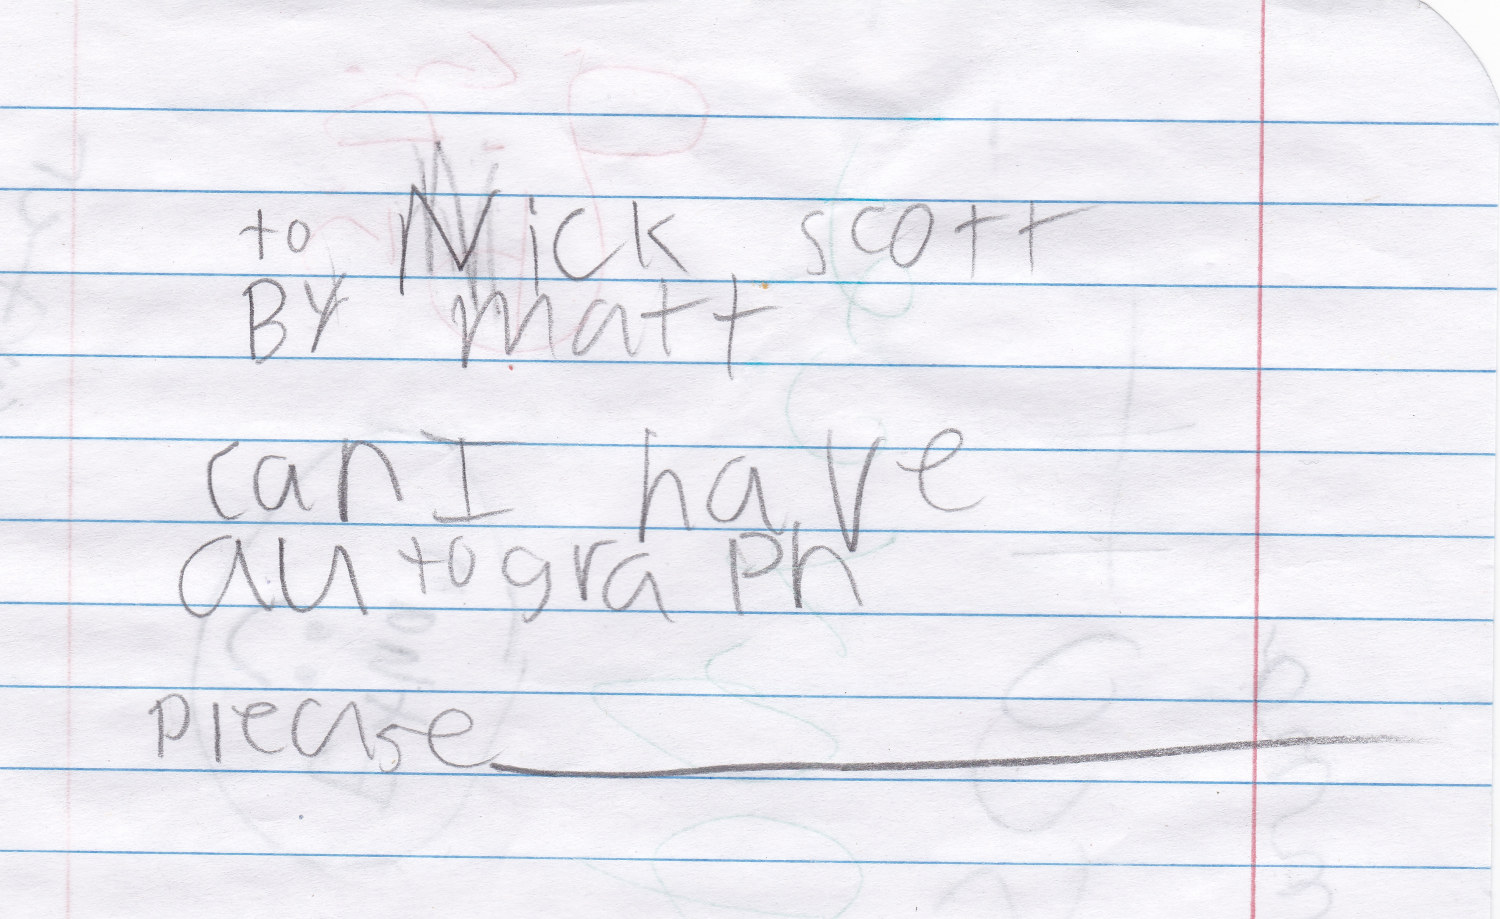 to Nick scott
BY matt
can I have
autograph
please